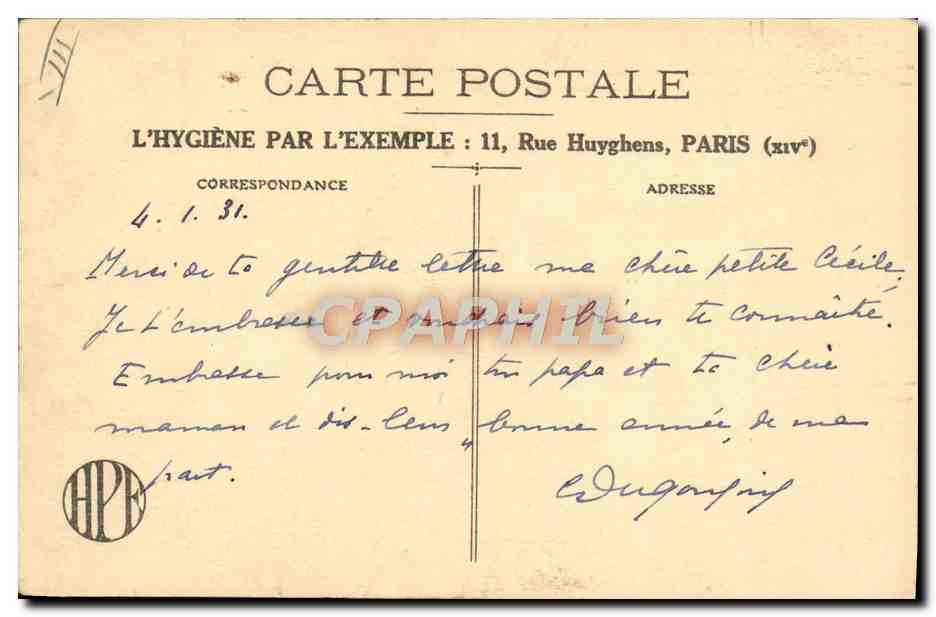 CARTE POSTALE
L'HYGIÈNE PAR L'EXEMPLE : 11, Rue Huyghens, PARIS (XIVe)
CORRESPONDANCE
ADRESSE
4. 1. 31.
Merci de ta gentille lettre ma chère petite Cécile.
Je t'embrasse et voudrais bien te connaître.
Embrasse pour moi ton papa et ta chère
maman et dis-leur "bonne année" de ma
part.
HPE
CPAPHIL